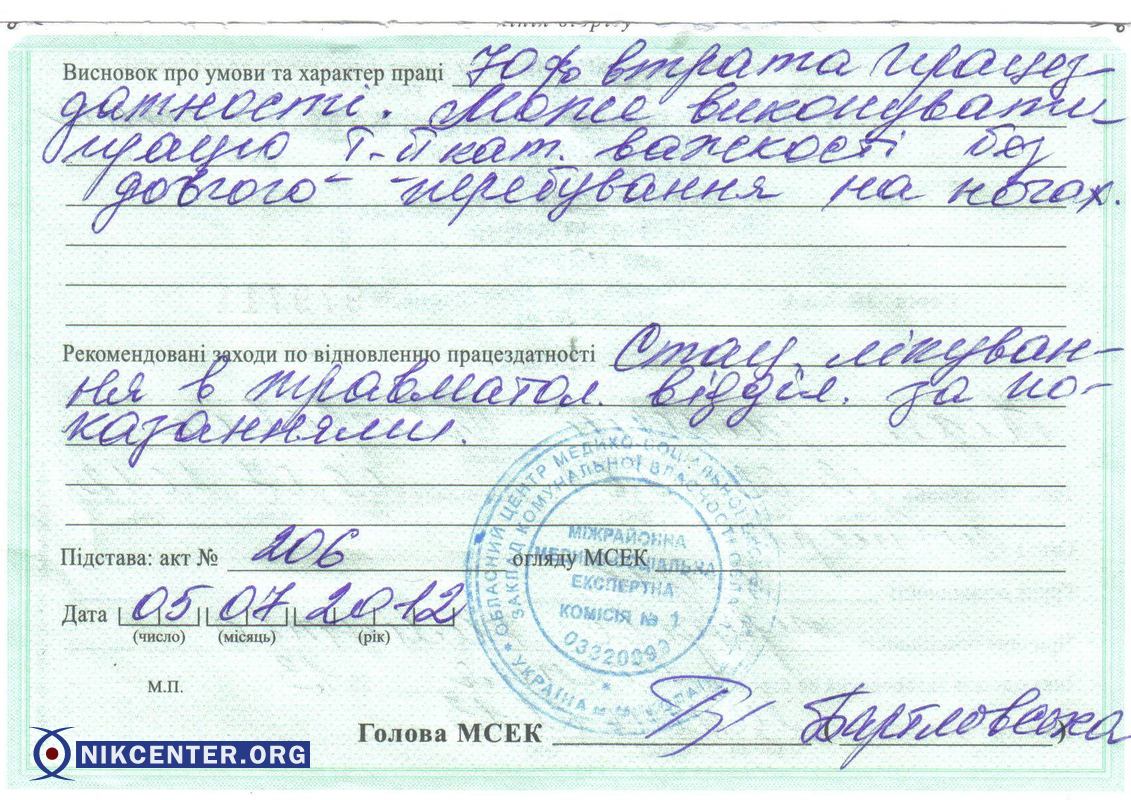 лінія відрізу
Висновок про умови та характер праці 70% втрата працез-
датності. Може виконувати
працю І-ІІ кат. важкості без
довгого перебування на ногах.
Рекомендовані заходи по відновленню працездатності Стац. лікуван-
ня в травматол. відділ. за по-
казаннями.
ОБЛАСНИЙ ЦЕНТР МЕДИКО-СОЦІАЛЬНОЇ
ЗАКЛАД КОМУНАЛЬНОЇ ВЛАСНОСТІ
МІЖРАЙОННА
МЕДИКО-СОЦІАЛЬНА
ЕКСПЕРТНА
КОМІСІЯ № 1
* УКРАЇНА
Підстава: акт № 206 огляду МСЕК
Дата 05 07 2012
(число) (місяць) (рік)
М.П.
Голова МСЕК
NIKCENTER.ORG